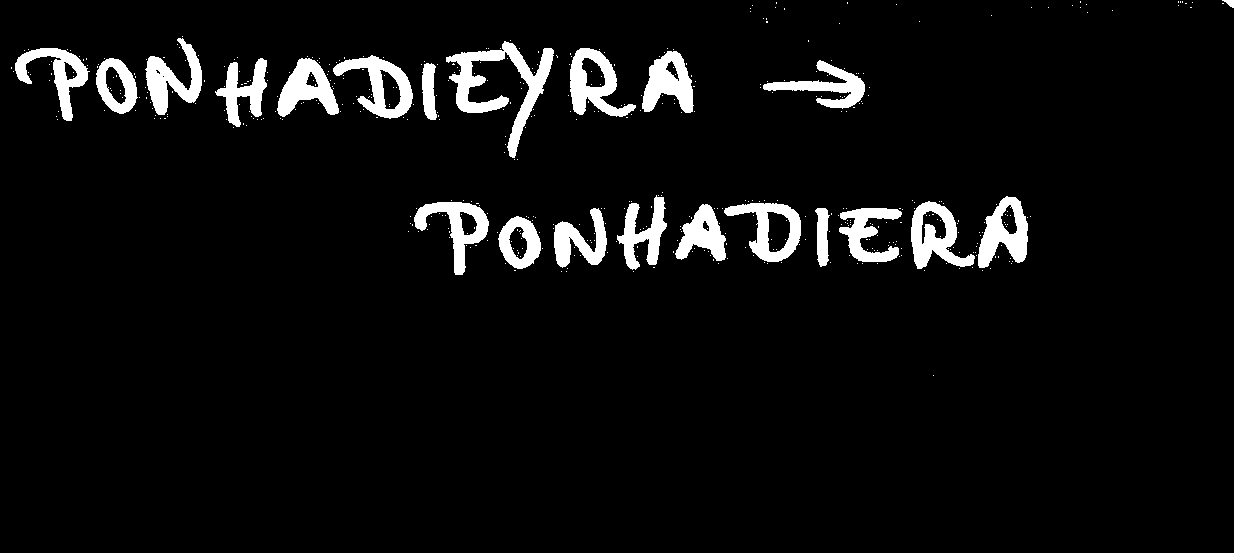 PONHADIEYRA →
PONHADIERA